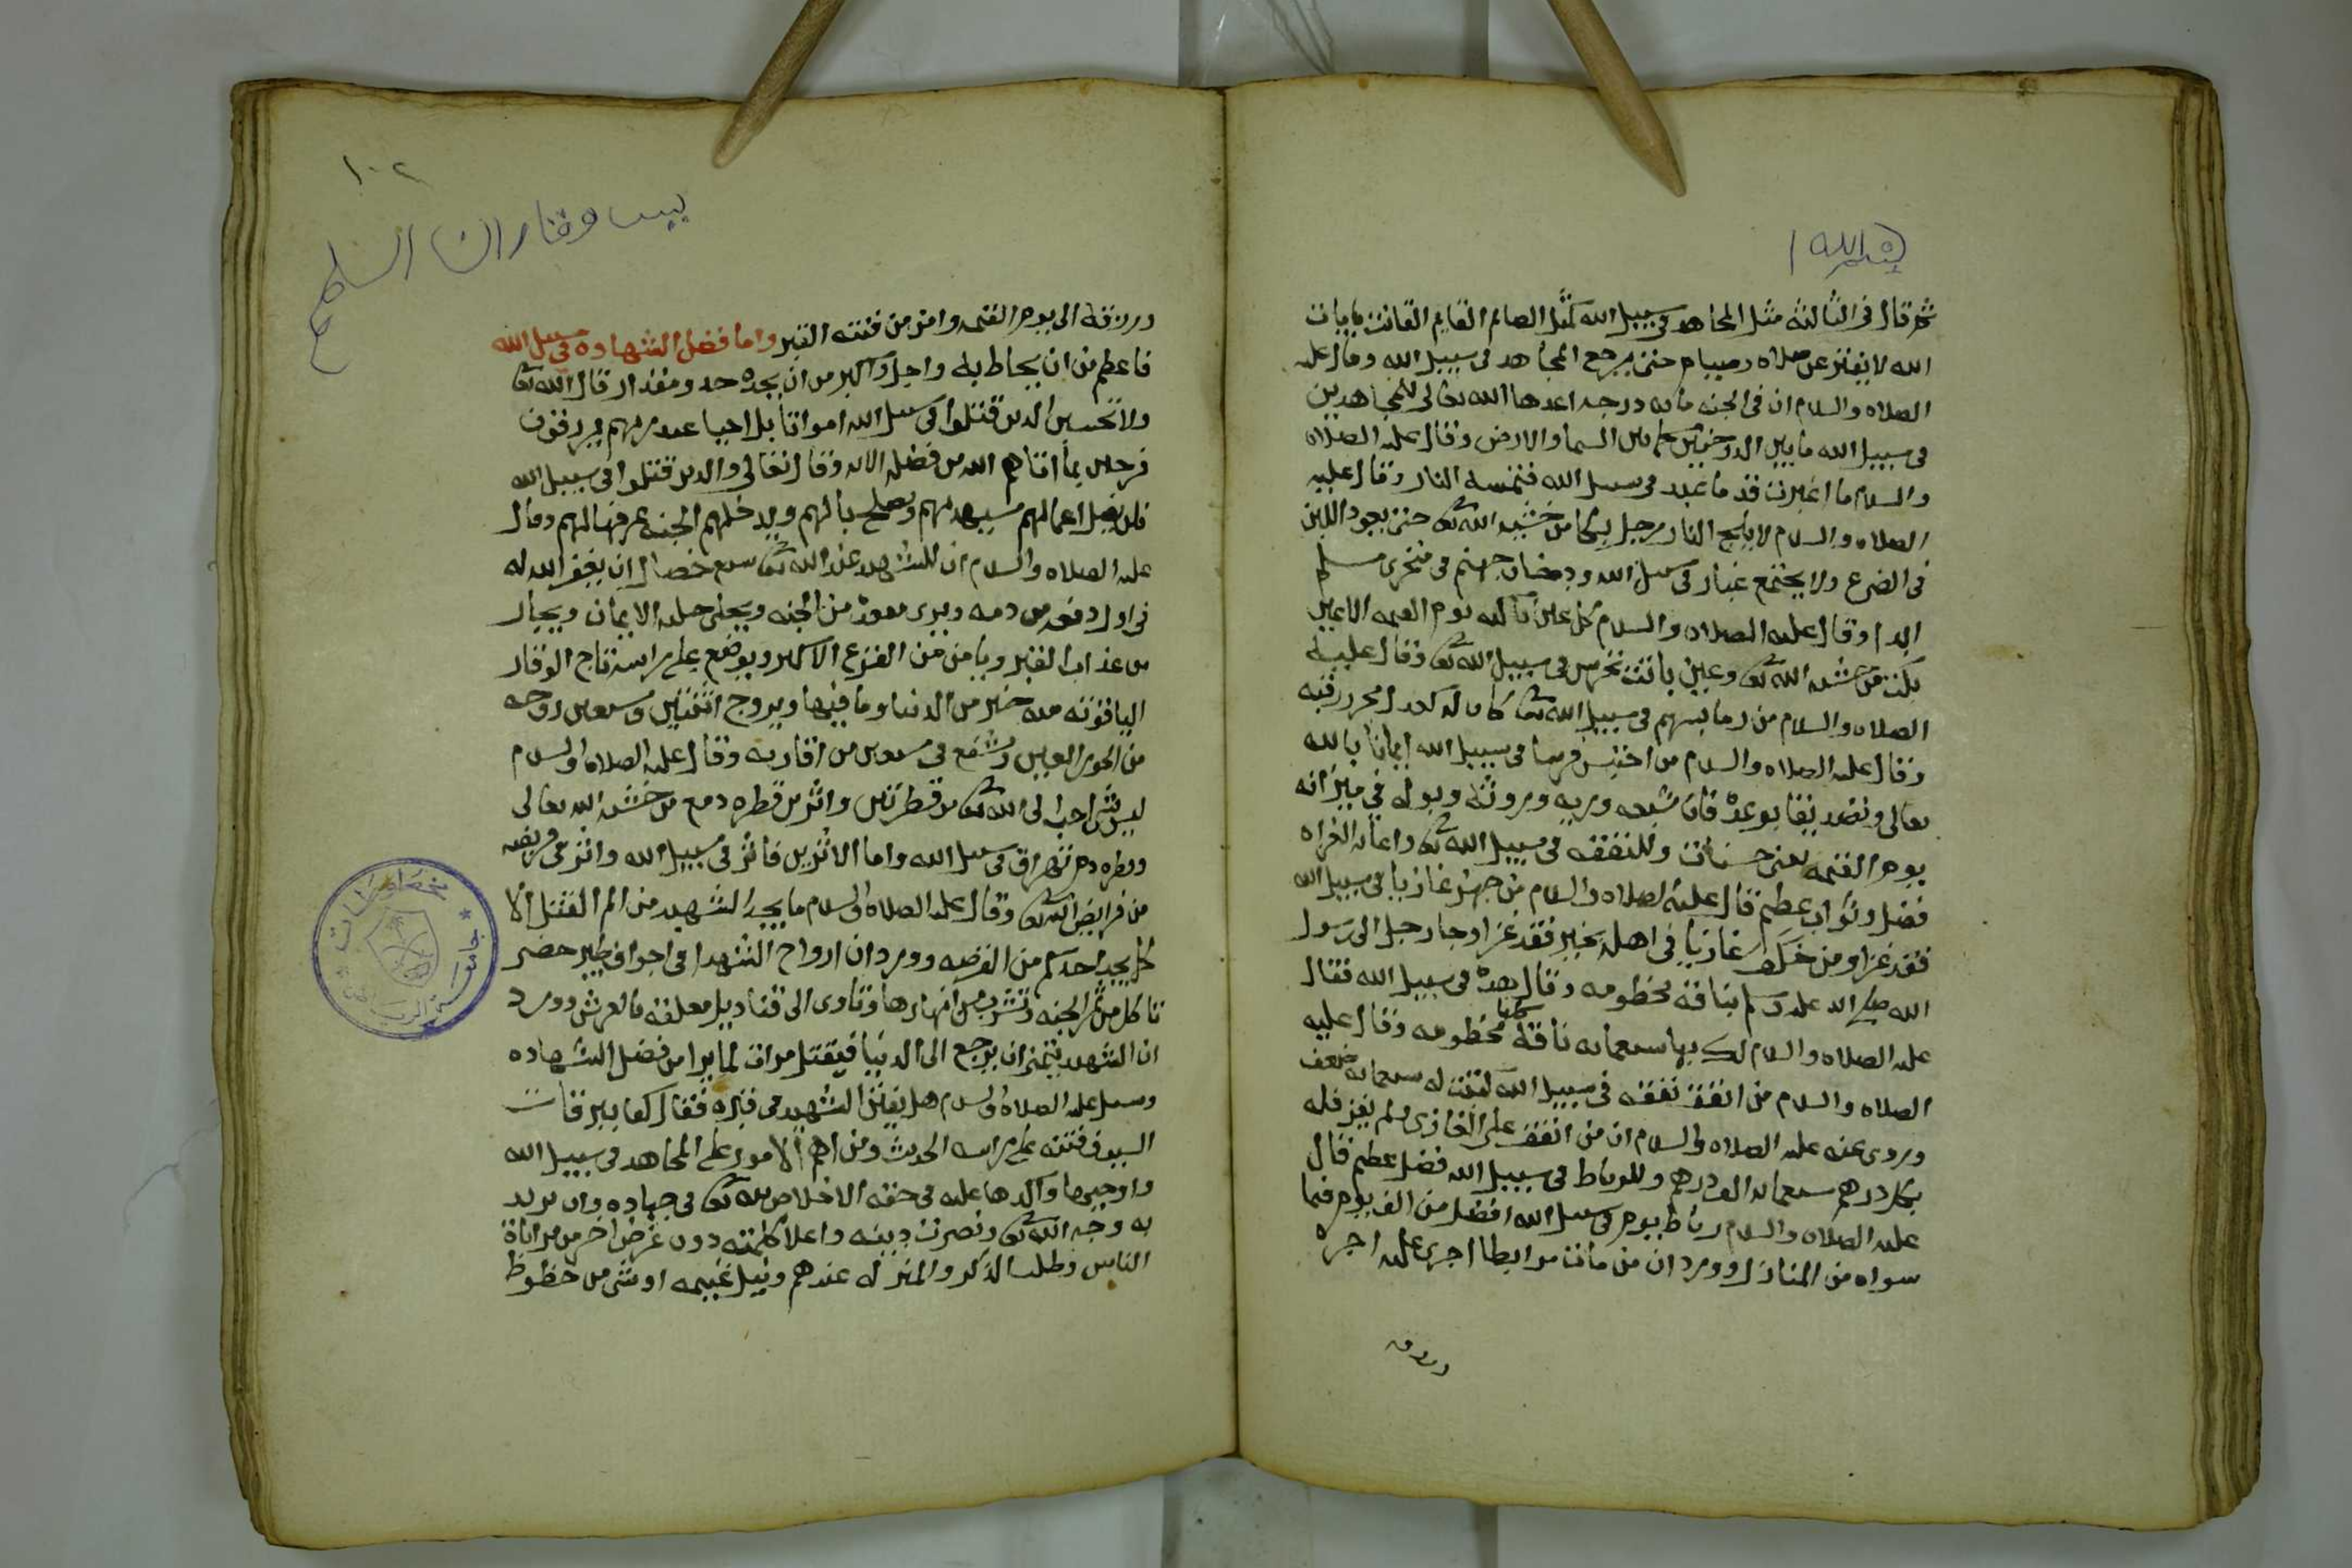 بسم الله ا
ثم قال في الثالثه مثل المجاهد في سبيل الله كمثل الصايم القايم القانت بايات
الله لا يفتر عن صلاه وصيام حتى يرجع المجاهد في سبيل الله وقال عليه
الصلاه والسلام ان في الجنه مايه درجه اعدها الله تعالى للمجاهدين
في سبيل الله ما بين الدرجتين كما بين السما والارض وقال عليه الصلاه
والسلام ما اغبرت قدما عبد في سبيل الله فتمسه النار وقال عليه
الصلاه والسلام لا يلج النار رجل بكا من خشيه الله تعالى حتى يعود اللبن
في الضرع ولا يجتمع غبار في سبيل الله ودخان جهنم في منخري مسلم
ابدا وقال عليه الصلاه والسلام كل عين باكيه يوم القيمه الا عين
بكت من خشيه الله تعالى وعين باتت تحرس في سبيل الله تعالى وقال عليه
الصلاه والسلام من رما بسهم في سبيل الله تعالى كان له كعدل محرر رقبه
وقال عليه الصلاه والسلام من احتبس فرسا في سبيل الله ايمانا بالله
تعالى وتصديقا بوعده فان شبعه وريه وروثه وبوله في ميزانه
يوم القيمه يعني حسنات وللنفقه في سبيل الله تعالى واعانه الغزاه
فضل وثواب عظيم قال عليه الصلاه والسلام من جهز غازيا في سبيل الله
فقد غزا ومن خلف غازيا في اهله بخير فقد غزا وجا رجل الى رسول
الله صلى الله عليه وسلم بناقه مخطومه وقال هذه في سبيل الله فقال
عليه الصلاه والسلام لك بها سبعمايه ناقه كلها مخطومه وقال عليه
الصلاه والسلام من انفق نفقه في سبيل الله كتبت له سبعمايه ضعف
وروي عنه عليه الصلاه والسلام ان من انفق على الغازي ولم يغز فله
بكل درهم سبعمايه الف درهم وللرباط في سبيل الله فضل عظيم قال
عليه الصلاه والسلام رباط يوم في سبيل الله افضل من الف يوم فيما
سواه من المنازل وورد ان من مات مرابطا اجري عليه اجره
ورزقه
١٠٢
ورزقه الى يوم القيمه وامن من فتنه القبر واما فضل الشهاده في سبيل الله
فاعظم من ان يحاط به واجل واكبر من ان يحده حد ومقدار قال الله تعالى
ولا تحسبن الذين قتلوا في سبيل الله امواتا بل احيا عند ربهم يرزقون
فرحين بما اتاهم الله من فضله الايه وقال تعالى والذين قتلوا في سبيل الله
فلن يضل اعمالهم سيهديهم ويصلح بالهم ويدخلهم الجنه عرفها لهم وقال
عليه الصلاه والسلام ان للشهيد عند الله تعالى سبع خصال ان يغفر الله له
في اول دفعه من دمه ويرى مقعده من الجنه ويحلى حله الايمان ويجار
من عذاب القبر ويامن من الفزع الاكبر ويوضع على راسه تاج الوقار
الياقوته منه خير من الدنيا وما فيها ويزوج اثنتين وسبعين زوجه
من الحور العين ويشفع في سبعين من اقاربه وقال عليه الصلاه والسلام
ليس شي احب الى الله تعالى من قطرتين واثرين قطره دمع من خشيه الله تعالى
وقطره دم تهراق في سبيل الله واما الاثرين فاثر في سبيل الله واثر في فريضه
من فرايض الله تعالى وقال عليه الصلاه والسلام ما يجد الشهيد من الم القتل الا
كما يجد احدكم من القرصه وورد ان ارواح الشهدا في اجواف طير خضر
تاكل من ثمر الجنه وتشرب من انهارها وتاوى الى قناديل معلقه بالعرش وورد
ان الشهيد يتمنى ان يرجع الى الدنيا فيقتل مرات لما يرا من فضل الشهاده
وسيل عليه الصلاه والسلام هل يفتن الشهيد في قبره فقال كفا ببرقات
السيوف فتنه على راسه الحديث ومن اهم الامور على المجاهد في سبيل الله
واوجبها واكدها عليه في حقه الاخلاص لله تعالى في جهاده وان يريد
به وجه الله تعالى ونصرت دينه واعلا كلمته دون غرض اخر من مراياة
الناس وطلب الذكر والمنزله عندهم ونيل غنيمه او شي من حظوظ
جامعة الرياض
مخطوطات